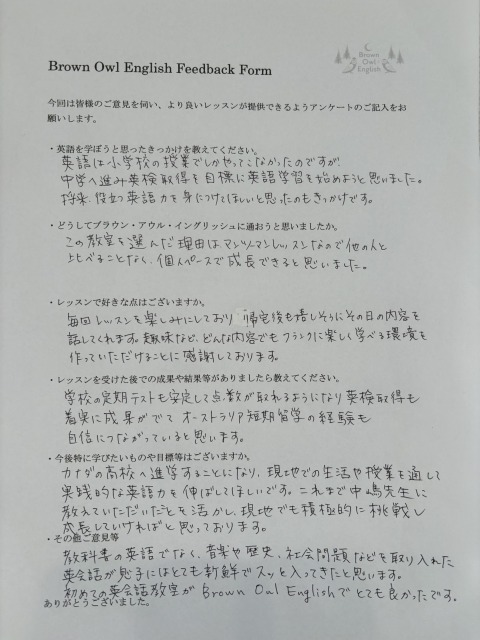 Brown Owl English Feedback Form
Brown
Owl
English
今回は皆様のご意見を伺い、より良いレッスンが提供できるようアンケートのご記入をお
願いします。
・英語を学ぼうと思ったきっかけを教えてください。
英語は小学校の授業でしかやってこなかったのですが、
中学へ進み英検取得を目標に英語学習を始めようと思いました。
将来、役立つ英語力を身につけてほしいと思ったのもきっかけです。
・どうしてブラウン・アウル・イングリッシュに通おうと思いましたか。
この教室を選んだ理由はマンツーマンレッスンなので他の人と
比べることなく、個人ペースで成長できると思いました。
・レッスンで好きな点はございますか。
毎回レッスンを楽しみにしており 帰宅後も嬉しそうにその日の内容を
話してくれます。趣味など、どんな内容でもフランクに楽しく学べる環境を
作っていただけることに感謝しております。
・レッスンを受けた後での成果や結果等がありましたら教えてください。
学校の定期テストも安定して点数が取れるようになり英検取得も
着実に成果がでて オーストラリア短期留学の経験も
自信につながっていると思います。
・今後特に学びたいものや目標等はございますか。
カナダの高校へ進学することになり、現地での生活や授業を通して
実践的な英語力を伸ばしてほしいです。これまで中嶋先生に
教えていただいたことを活かし、現地でも積極的に挑戦し
成長していければと思っております。
・その他ご意見等
教科書の英語でなく、音楽や歴史、社会問題などを取り入れた
英会話が児子にはとても新鮮でスッと入ってきたと思います。
初めての英会話教室が Brown Owl Englishで とても良かったです。
ありがとうございました。